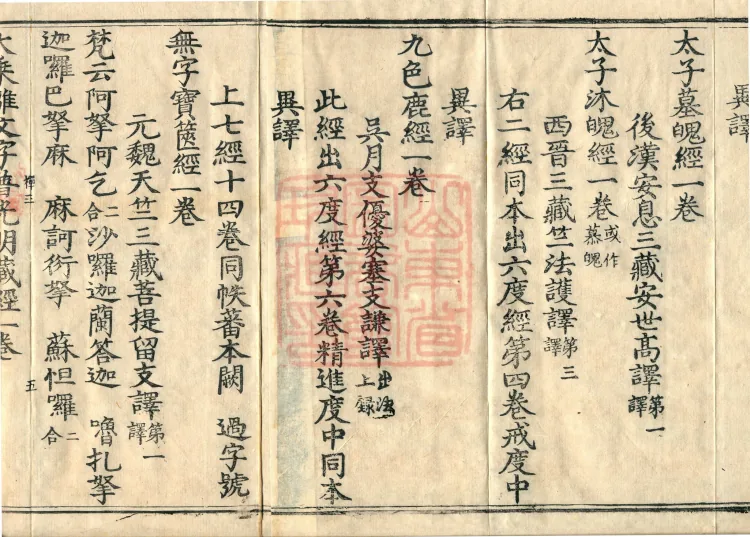 異譯
太子墓魄經一卷
後漢安息三藏安世髙譯第一譯
太子沐魄經一卷或作慕魄
西晉三藏竺法護譯第三譯
右二經同本出六度經第四卷戒度中
異譯
九色鹿經一卷
吳月支優婆塞支謙譯出法上録
此經出六度經第六卷精進度中同本
異譯
上七經十四卷同帙蕃本闕 過字號
無字寶篋經一卷
元魏天竺三藏菩提留支譯第一譯
梵云阿拏阿乞二合沙囉迦蘭答迦 嚕扎拏
迦囉巴拏麻 麻訶衍拏 蘇怛囉二合
大乘離文字普光明藏經一卷
五